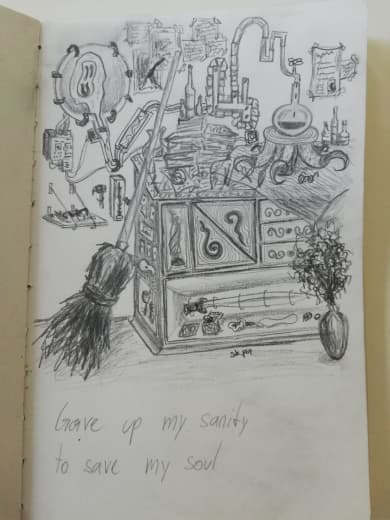 Gave up my sanity
to save my soul